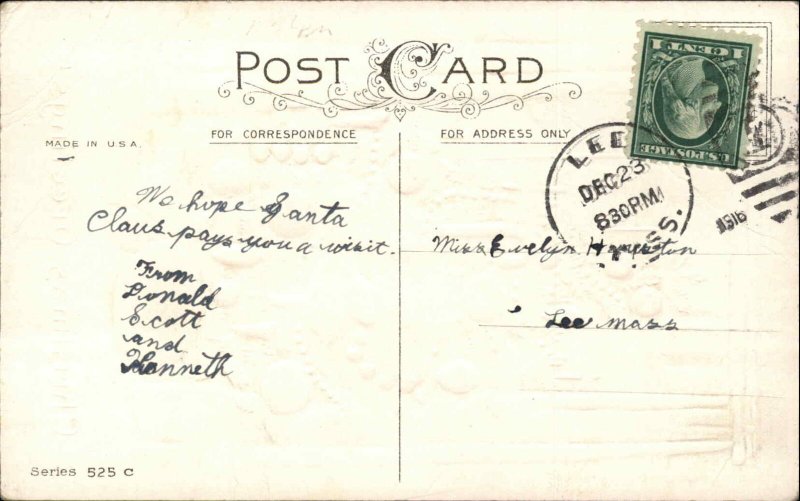 POST CARD
FOR CORRESPONDENCE
FOR ADDRESS ONLY
MADE IN U.S.A.
1 CENT 1
U.S. POSTAGE
LEE
DEC 23
830 PM
MASS.
1916
We hope Santa
Claus pays you a visit.
From
Donald
Scott
and
Kenneth
Miss Evelyn
Lee Mass
Series 525 C